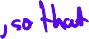 , so that